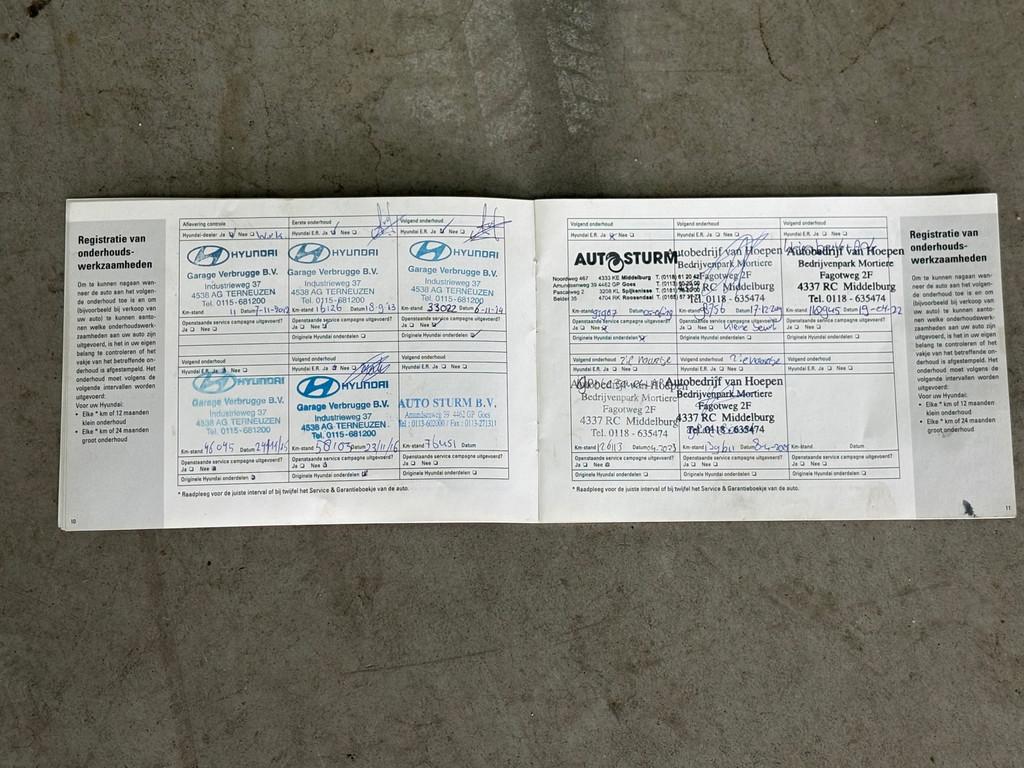 Registratie van
onderhouds-
werkzaamheden
Om te kunnen nagaan wan-
neer de auto aan het volgen-
de onderhoud toe is en om
(bijvoorbeeld bij verkoop van
uw auto) te kunnen aanto-
nen welke onderhoudswerk-
zaamheden aan uw auto zijn
uitgevoerd, is het in uw eigen
belang te controleren of het
vakje van het betreffende on-
derhoud is afgestempeld. Het
onderhoud moet volgens de
volgende intervallen worden
uitgevoerd:
Voor uw Hyundai:
• Elke * km of 12 maanden
klein onderhoud
• Elke * km of 24 maanden
groot onderhoud
10
Aflevering controle
Hyundai-dealer Ja Nee
HYUNDAI
Garage Verbrugge B.V.
Industrieweg 37
4538 AG TERNEUZEN
Tel. 0115-681200
Km-stand 11 Datum 7-11-2012
Openstaande service campagne uitgevoerd?
Ja Nee
Eerste onderhoud
Hyundai E.R. Ja Nee
HYUNDAI
Garage Verbrugge B.V.
Industrieweg 37
4538 AG TERNEUZEN
Tel. 0115-681200
Km-stand 16126 Datum 18-9-13
Openstaande service campagne uitgevoerd?
Ja Nee
Originele Hyundai onderdelen
Volgend onderhoud
Hyundai E.R. Ja Nee
HYUNDAI
Garage Verbrugge B.V.
Industrieweg 37
4538 AG TERNEUZEN
Tel. 0115-681200
Km-stand 33022 Datum 6-11-14
Openstaande service campagne uitgevoerd?
Ja Nee
Originele Hyundai onderdelen
Volgend onderhoud
Hyundai E.R. Ja Nee
HYUNDAI
Garage Verbrugge B.V.
Industrieweg 37
4538 AG TERNEUZEN
Tel. 0115-681200
Km-stand 46045 Datum
Openstaande service campagne uitgevoerd?
Ja Nee
Originele Hyundai onderdelen
Volgend onderhoud
Hyundai E.R. Ja Nee
HYUNDAI
Garage Verbrugge B.V.
Industrieweg 37
4538 AG TERNEUZEN
Tel. 0115-681200
Km-stand 58103 Datum 23/11/16
Openstaande service campagne uitgevoerd?
Ja Nee
Originele Hyundai onderdelen
Volgend onderhoud
Hyundai E.R. Ja Nee
AUTO STURM B.V.
Amundsenweg 39 4462 GP Goes
Tel.: 0113-602000 / Fax.: 0113-271311
Km-stand Datum
Openstaande service campagne uitgevoerd?
Ja Nee
Originele Hyundai onderdelen
* Raadpleeg voor de juiste interval of bij twijfel het Service & Garantieboekje van de auto.
Volgend onderhoud
Hyundai E.R. Ja Nee
AUTO STURM
Noordweg 467 4333 KE Middelburg
Amundsenweg 39 4462 GP Goes
Pascalweg 2 3208 KL Spijkenisse
Belder 35 4704 RK Roosendaal
Km-stand Datum
Openstaande service campagne uitgevoerd?
Ja Nee
Originele Hyundai onderdelen
Volgend onderhoud
Hyundai E.R. Ja Nee
Autobedrijf van Hoepen
Bedrijvenpark Mortiere
Fagotweg 2F
4337 RC Middelburg
Tel. 0118 - 635474
Km-stand Datum
Openstaande service campagne uitgevoerd?
Ja Nee Kleine beurt
Originele Hyundai onderdelen
Volgend onderhoud
Hyundai E.R. Ja Nee
Autobedrijf van Hoepen
Bedrijvenpark Mortiere
Fagotweg 2F
4337 RC Middelburg
Tel. 0118 - 635474
Km-stand Datum 19-04-22
Openstaande service campagne uitgevoerd?
Ja Nee
Originele Hyundai onderdelen
Volgend onderhoud
Hyundai E.R. Ja Nee
Bedrijvenpark Mortiere
Fagotweg 2F
4337 RC Middelburg
Tel. 0118 - 635474
Km-stand Datum
Openstaande service campagne uitgevoerd?
Ja Nee
Originele Hyundai onderdelen
Volgend onderhoud
Hyundai E.R. Ja Nee
Autobedrijf van Hoepen
Bedrijvenpark Mortiere
Fagotweg 2F
4337 RC Middelburg
Tel. 0118 - 635474
Km-stand Datum
Openstaande service campagne uitgevoerd?
Ja Nee
Originele Hyundai onderdelen
Volgend onderhoud
Hyundai E.R. Ja Nee
Km-stand Datum
Openstaande service campagne uitgevoerd?
Ja Nee
Originele Hyundai onderdelen
* Raadpleeg voor de juiste interval of bij twijfel het Service & Garantieboekje van de auto.
Registratie van
onderhouds-
werkzaamheden
Om te kunnen nagaan wan-
neer de auto aan het volgen-
de onderhoud toe is en om
(bijvoorbeeld bij verkoop van
uw auto) te kunnen aanto-
nen welke onderhoudswerk-
zaamheden aan uw auto zijn
uitgevoerd, is het in uw eigen
belang te controleren of het
vakje van het betreffende on-
derhoud is afgestempeld. Het
onderhoud moet volgens de
volgende intervallen worden
uitgevoerd:
Voor uw Hyundai:
• Elke * km of 12 maanden
klein onderhoud
• Elke * km of 24 maanden
groot onderhoud
11